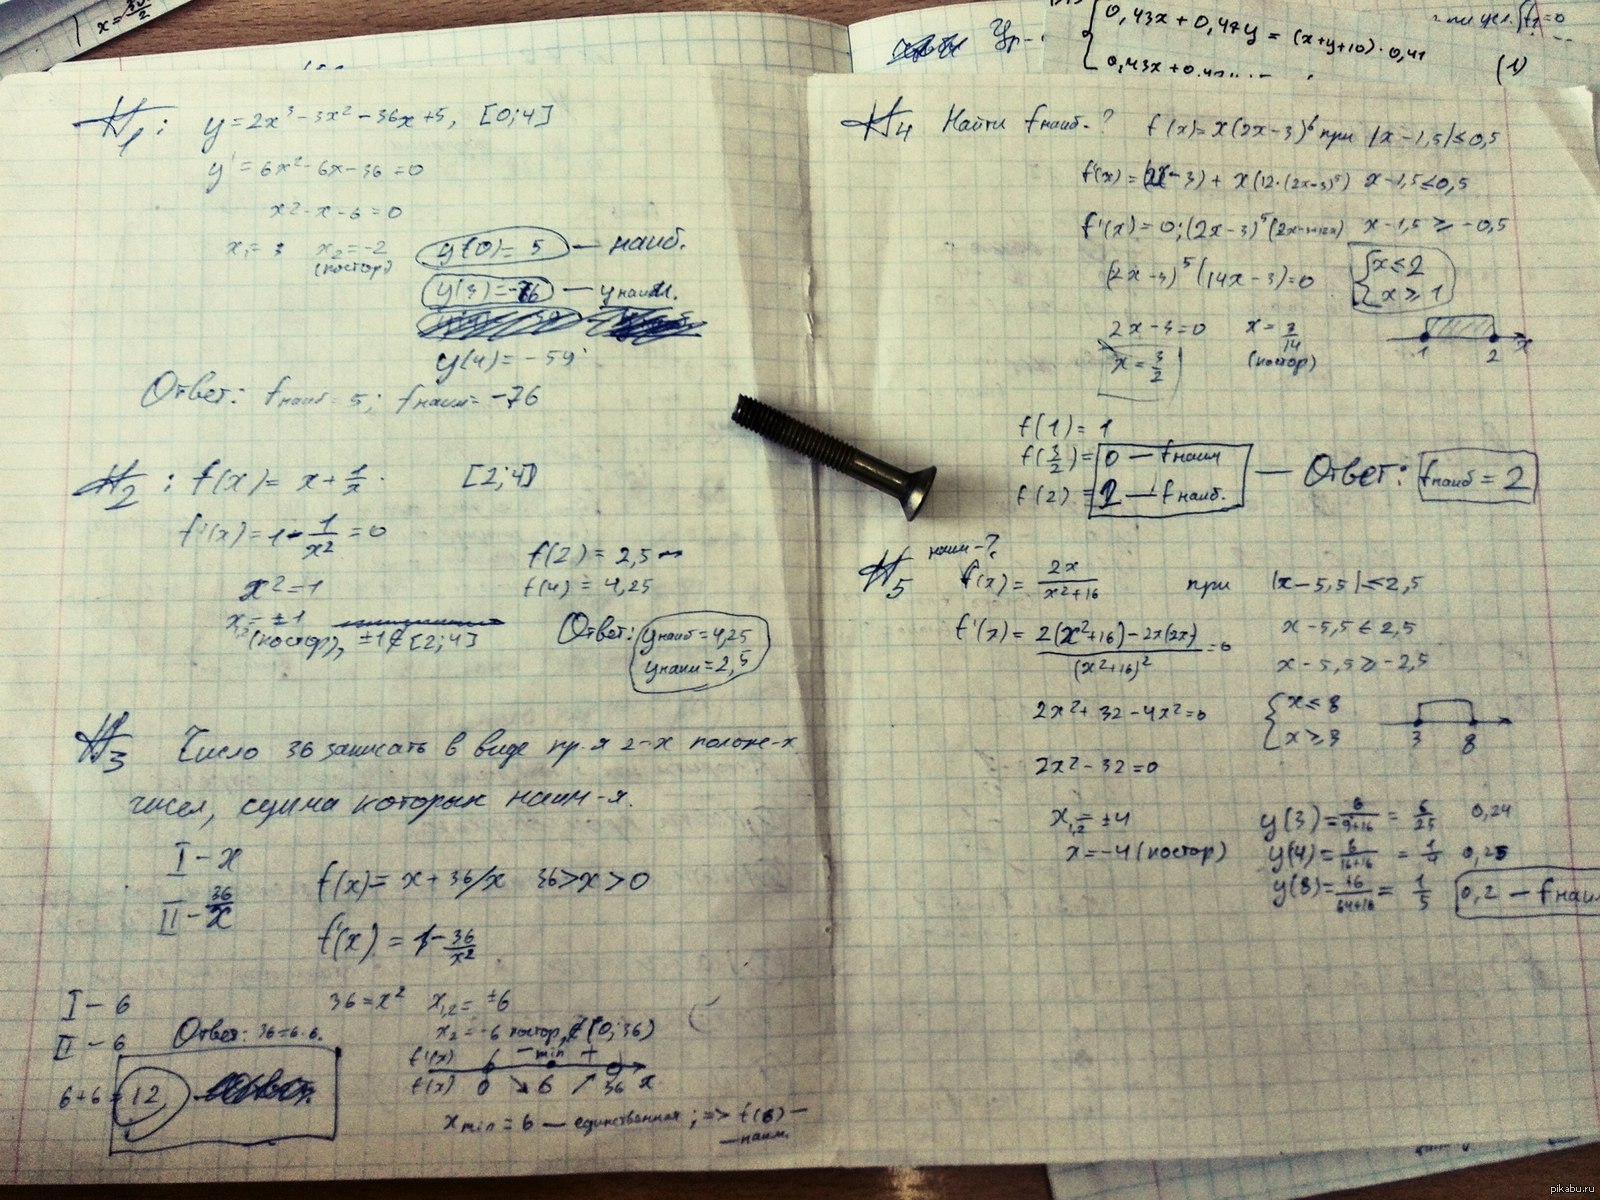 x =
0,43x + 0,47y = (x+y+10)·0,41
(1)
№1: y = 2x³ - 3x² - 36x + 5, [0;4]
y' = 6x² - 6x - 36 = 0
x² - x - 6 = 0
x₁ = 3 x₂ = -2
(постор)
y(0) = 5 — наиб.
y(3) = -76 — y наим.
y(4) = -59
Ответ: fнаиб = 5; fнаим = -76
№2: f(x) = x + 1/x. [2;4]
f'(x) = 1 - 1/x² = 0
x² = 1
x₁,₂ = ±1
(постор), ±1 ∉ [2;4]
f(2) = 2,5
f(4) = 4,25
Ответ: yнаиб = 4,25
yнаим = 2,5
№3 Число 36 записать в виде пр-я 2-х полож-х
чисел, сумма которых наим-я.
I - x
II - 36/x
f(x) = x + 36/x 36 > x > 0
f'(x) = 1 - 36/x²
36 = x² x₁,₂ = ±6
x₂ = -6 постор, ∉ (0;36)
I - 6
II - 6
Ответ: 36 = 6·6.
6+6 = 12
f'(x) - min +
f(x) 0 ↘ 6 ↗ 36 x
x min = 6 — единственная; => f(6) —
— наим.
№4 Найти fнаиб. - ? f(x) = x(2x-3)⁶ при |x-1,5| ≤ 0,5
f'(x) = (2x-3) + x(12·(2x-3)⁵) x-1,5 ≤ 0,5
f'(x) = 0; (2x-3)⁵ x-1,5 ≥ -0,5
(2x-3)⁵(14x-3) = 0
{ x ≤ 2
x ≥ 1
2x-3 = 0 x = 3/14
x = 3/2 (постор)
1 2 x
f(1) = 1
f(3/2) = 0 — fнаим
f(2) = 2 — fнаиб. — Ответ: fнаиб = 2
№5 наим - ?
f(x) = 2x/(x²+16) при |x-5,5| ≤ 2,5
f'(x) = (2(x²+16) - 2x(2x))/(x²+16)² = 0
x-5,5 ≤ 2,5
x-5,5 ≥ -2,5
2x² + 32 - 4x² = 0
{ x ≤ 8
x ≥ 3
3 8
2x² - 32 = 0
x₁,₂ = ±4
x = -4 (постор)
y(3) = 6/(9+16) = 6/25 0,24
y(4) = 8/(16+16) = 1/4 0,25
y(8) = 16/(64+16) = 1/5 0,2 — fнаим
pikabu.ru